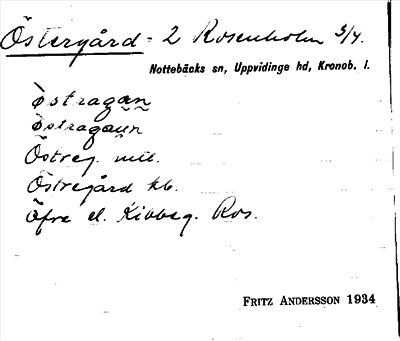 Östergård = 2 Rosenholm 5/4.
Nottebäcks sn, Uppvidinge hd, Kronob. l.
Östragan
Östragaun
Östreg. mtl.
Östregård kb.
Öfre el. Kibbeg. Ros.
FRITZ ANDERSSON 1934